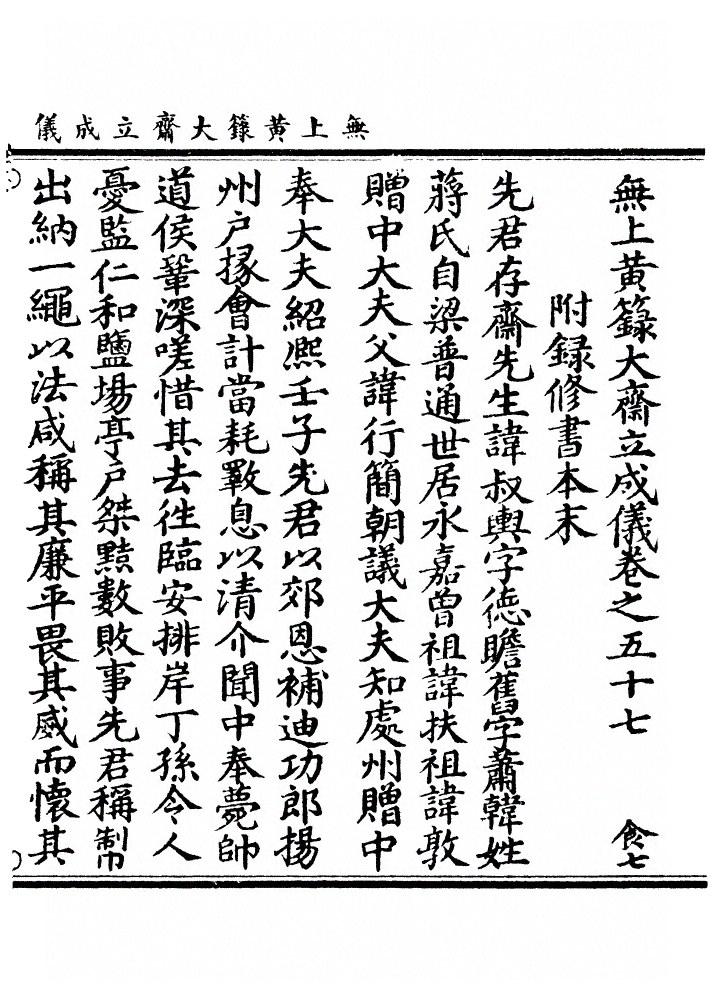 無上黄籙大齋立成儀
無上黄籙大齋立成儀卷之五十七 食七
附録修書本末
先君存齋先生諱叔輿字德瞻舊字蕭韓姓
蔣氏自梁普通世居永嘉曾祖諱扶祖諱敦
贈中大夫父諱行簡朝議大夫知處州贈中
奉大夫紹熙壬子先君以郊恩補迪功郎揚
州户掾會計當耗斁息以清介聞中奉薨帥
道侯鞏深嗟惜其去徃臨安排岸丁孫令人
憂監仁和鹽場亭户桀黠數敗事先君稱制
出納一繩以法咸稱其廉平畏其威而懷其